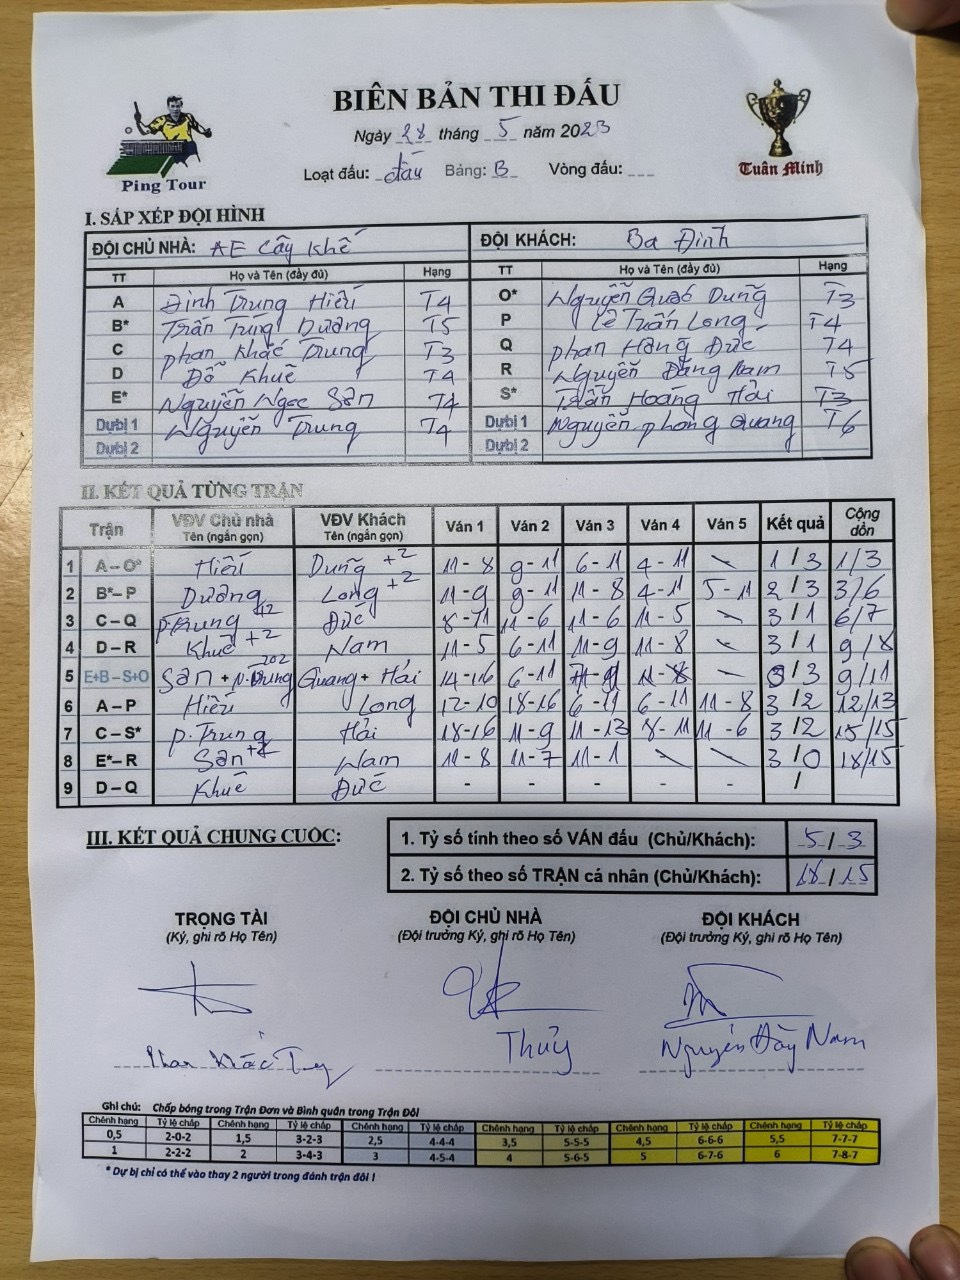 BIÊN BẢN THI ĐẤU
Ngày 28 tháng 5 năm 2023
Loạt đấu: đấu Bảng: B Vòng đấu:
Ping Tour
Tuân Minh
I. SẮP XẾP ĐỘI HÌNH
ĐỘI CHỦ NHÀ: AE Cây Khế ĐỘI KHÁCH: Ba Đình
TT Họ và Tên (đầy đủ) Hạng TT Họ và Tên (đầy đủ) Hạng
A Đinh Trung Hiếu T4 O* Nguyễn Quốc Dũng T3
B* Trần Tùng Dương T5 P Lê Trấn Long T4
C Phan Khắc Trung T3 Q Phan Hồng Đức T4
D Đỗ Khuê T4 R Nguyễn Đăng Nam T5
E* Nguyễn Ngọc Sơn T4 S* Trần Hoàng Hải T3
Dự bị 1 Nguyễn Trung T4 Dự bị 1 Nguyễn Phong Quang T6
Dự bị 2 Dự bị 2
II. KẾT QUẢ TỪNG TRẬN
Trận VĐV Chủ nhà Tên (ngắn gọn) VĐV Khách Tên (ngắn gọn) Ván 1 Ván 2 Ván 3 Ván 4 Ván 5 Kết quả Cộng dồn
1 A – O* Hiếu Dũng +2 11 - 8 9 - 11 6 - 11 4 - 11 \ 1 / 3 1/3
2 B* – P Dương Long +2 11 - 9 9 - 11 11 - 8 4 - 11 5 - 11 2 / 3 3/6
3 C – Q P. Trung Đức 8 - 11 11 - 6 11 - 6 11 - 5 \ 3 / 1 6/7
4 D – R Khuê +2 Nam 11 - 5 6 - 11 11 - 9 11 - 8 \ 3 / 1 9/8
5 E+B – S+O Sơn + N. Trung 202 Quang + Hải 14 - 16 6 - 11 \ 0 / 3 9/11
6 A – P Hiếu Long 12 - 10 18 - 16 6 - 11 6 - 11 11 - 8 3 / 2 12/13
7 C – S* P. Trung Hải 18 - 16 11 - 9 11 - 13 8 - 11 11 - 6 3 / 2 15/15
8 E* – R Sơn +2 Nam 11 - 8 11 - 7 11 - 1 \ \ 3 / 0 18/15
9 D – Q Khuê Đức - - - - - /
III. KẾT QUẢ CHUNG CUỘC:
1. Tỷ số tính theo số VÁN đấu (Chủ/Khách): 5 / 3
2. Tỷ số theo số TRẬN cá nhân (Chủ/Khách): 18 / 15
TRỌNG TÀI ĐỘI CHỦ NHÀ ĐỘI KHÁCH
(Ký, ghi rõ Họ Tên) (Đội trưởng Ký, ghi rõ Họ Tên) (Đội trưởng Ký, ghi rõ Họ Tên)
Phan Khắc Thủy Nguyễn Nam
Ghi chú: Chấp bóng trong Trận Đơn và Bình quân trong Trận Đôi
Chênh hạng Tỷ lệ chấp Chênh hạng Tỷ lệ chấp Chênh hạng Tỷ lệ chấp Chênh hạng Tỷ lệ chấp Chênh hạng Tỷ lệ chấp Chênh hạng Tỷ lệ chấp
0,5 2-0-2 1,5 3-2-3 2,5 4-4-4 3,5 5-5-5 4,5 6-6-6 5,5 7-7-7
1 2-2-2 2 3-4-3 3 4-5-4 4 5-6-5 5 6-7-6 6 7-8-7
* Dự bị chỉ có thể vào thay 2 người trong đánh trận đôi !